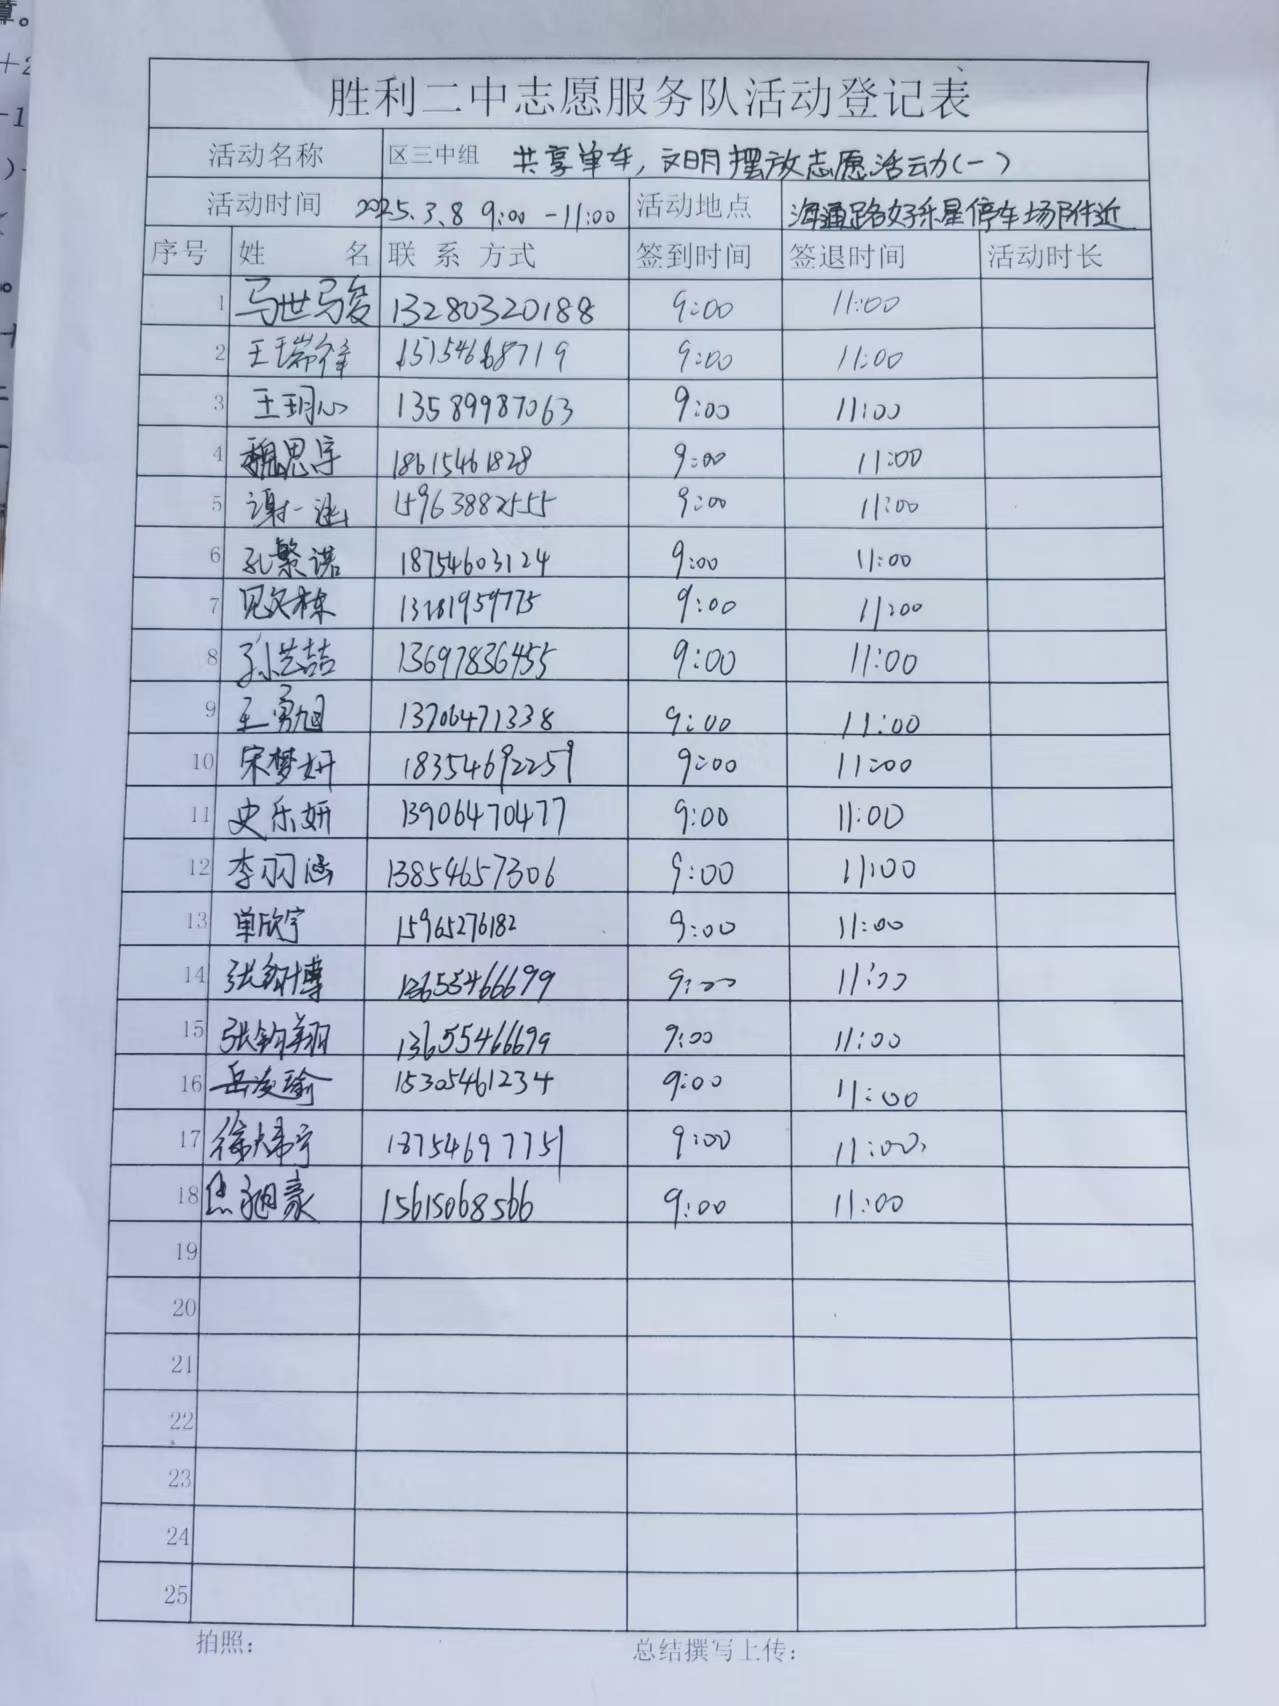 胜利二中志愿服务队活动登记表
活动名称 区三中组 共享单车,文明摆放志愿活动(一)
活动时间 2025.3.8 9:00-11:00 活动地点 海通路好乐星停车场附近
序号 姓名 联系方式 签到时间 签退时间 活动时长
1 马世骏 13280320188 9:00 11:00
2 王瑞锋 15154668719 9:00 11:00
3 王玥心 13589987063 9:00 11:00
4 魏思宇 18615461828 9:00 11:00
5 谢一涵 15963882555 9:00 11:00
6 孔繁诺 18754603124 9:00 11:00
7 13281959775 9:00 11:00
8 孙艺喆 13697836455 9:00 11:00
9 王勇旭 13706471338 9:00 11:00
10 宋梦妍 18354692259 9:00 11:00
11 史乐妍 13906470477 9:00 11:00
12 李羽涵 13854657306 9:00 11:00
13 单欣宇 15965276182 9:00 11:00
14 张钧博 13655466699 9:00 11:00
15 张钧翔 13655466699 9:00 11:00
16 岳凌瑜 15305461234 9:00 11:00
17 18754697751 9:00 11:00
18 15615068566 9:00 11:00
19
20
21
22
23
24
25
拍照: 总结撰写上传: